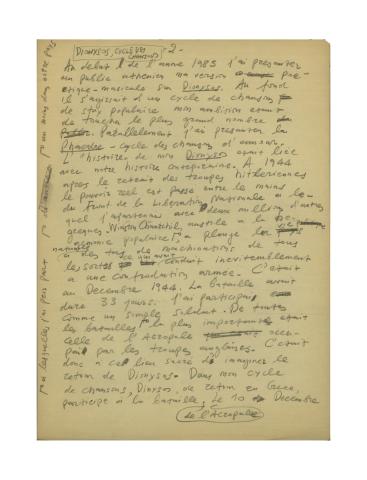 DIONYSOS, CYCLE DES CHANSONS
-2-
Au debut de l'annee 1985 j'ai presenter
au public athenien ma version poe-
tique-musicale sur Dionysos. Au fond
il s'agissait d'un cycle de chansons
de style populaire mon ambition etant
de toucher le plus grand nombre
Parallellement j'ai presenter la
Phaedre - cycle des chansons d'amour.
L'histoire de mon Dionysos etait liee
avec notre histoire contemporaine. A 1944
apres le retrait des troupes hitleriennes
le pouvoir reel est passe entre les mains
du Front de la Liberation Nationale au-
quel j'apartenais avec deux millions d'autres
grecques. Winston Churchill, hostile a la he-
gemonie populaire, a plonge les pays
a des de machinations de tous
les sortes conduit inevitablement
a une confrontation armee. C'etait
au Decembre 1944. La bataille avait
dure 33 jours. J'ai participai
comme un simple soldat. De toutes
les batailles la plus importante etait
celle de l'Acropole occu-
pai par les troupes anglaises. C'etait
donc a cet lieu sacre de imaginer le
retour de Dionysos. Dans mon cycle
de chansons, Dionysos, de retour en Grece,
participe a la bataille, le 10 Decembre
de l'Acropole